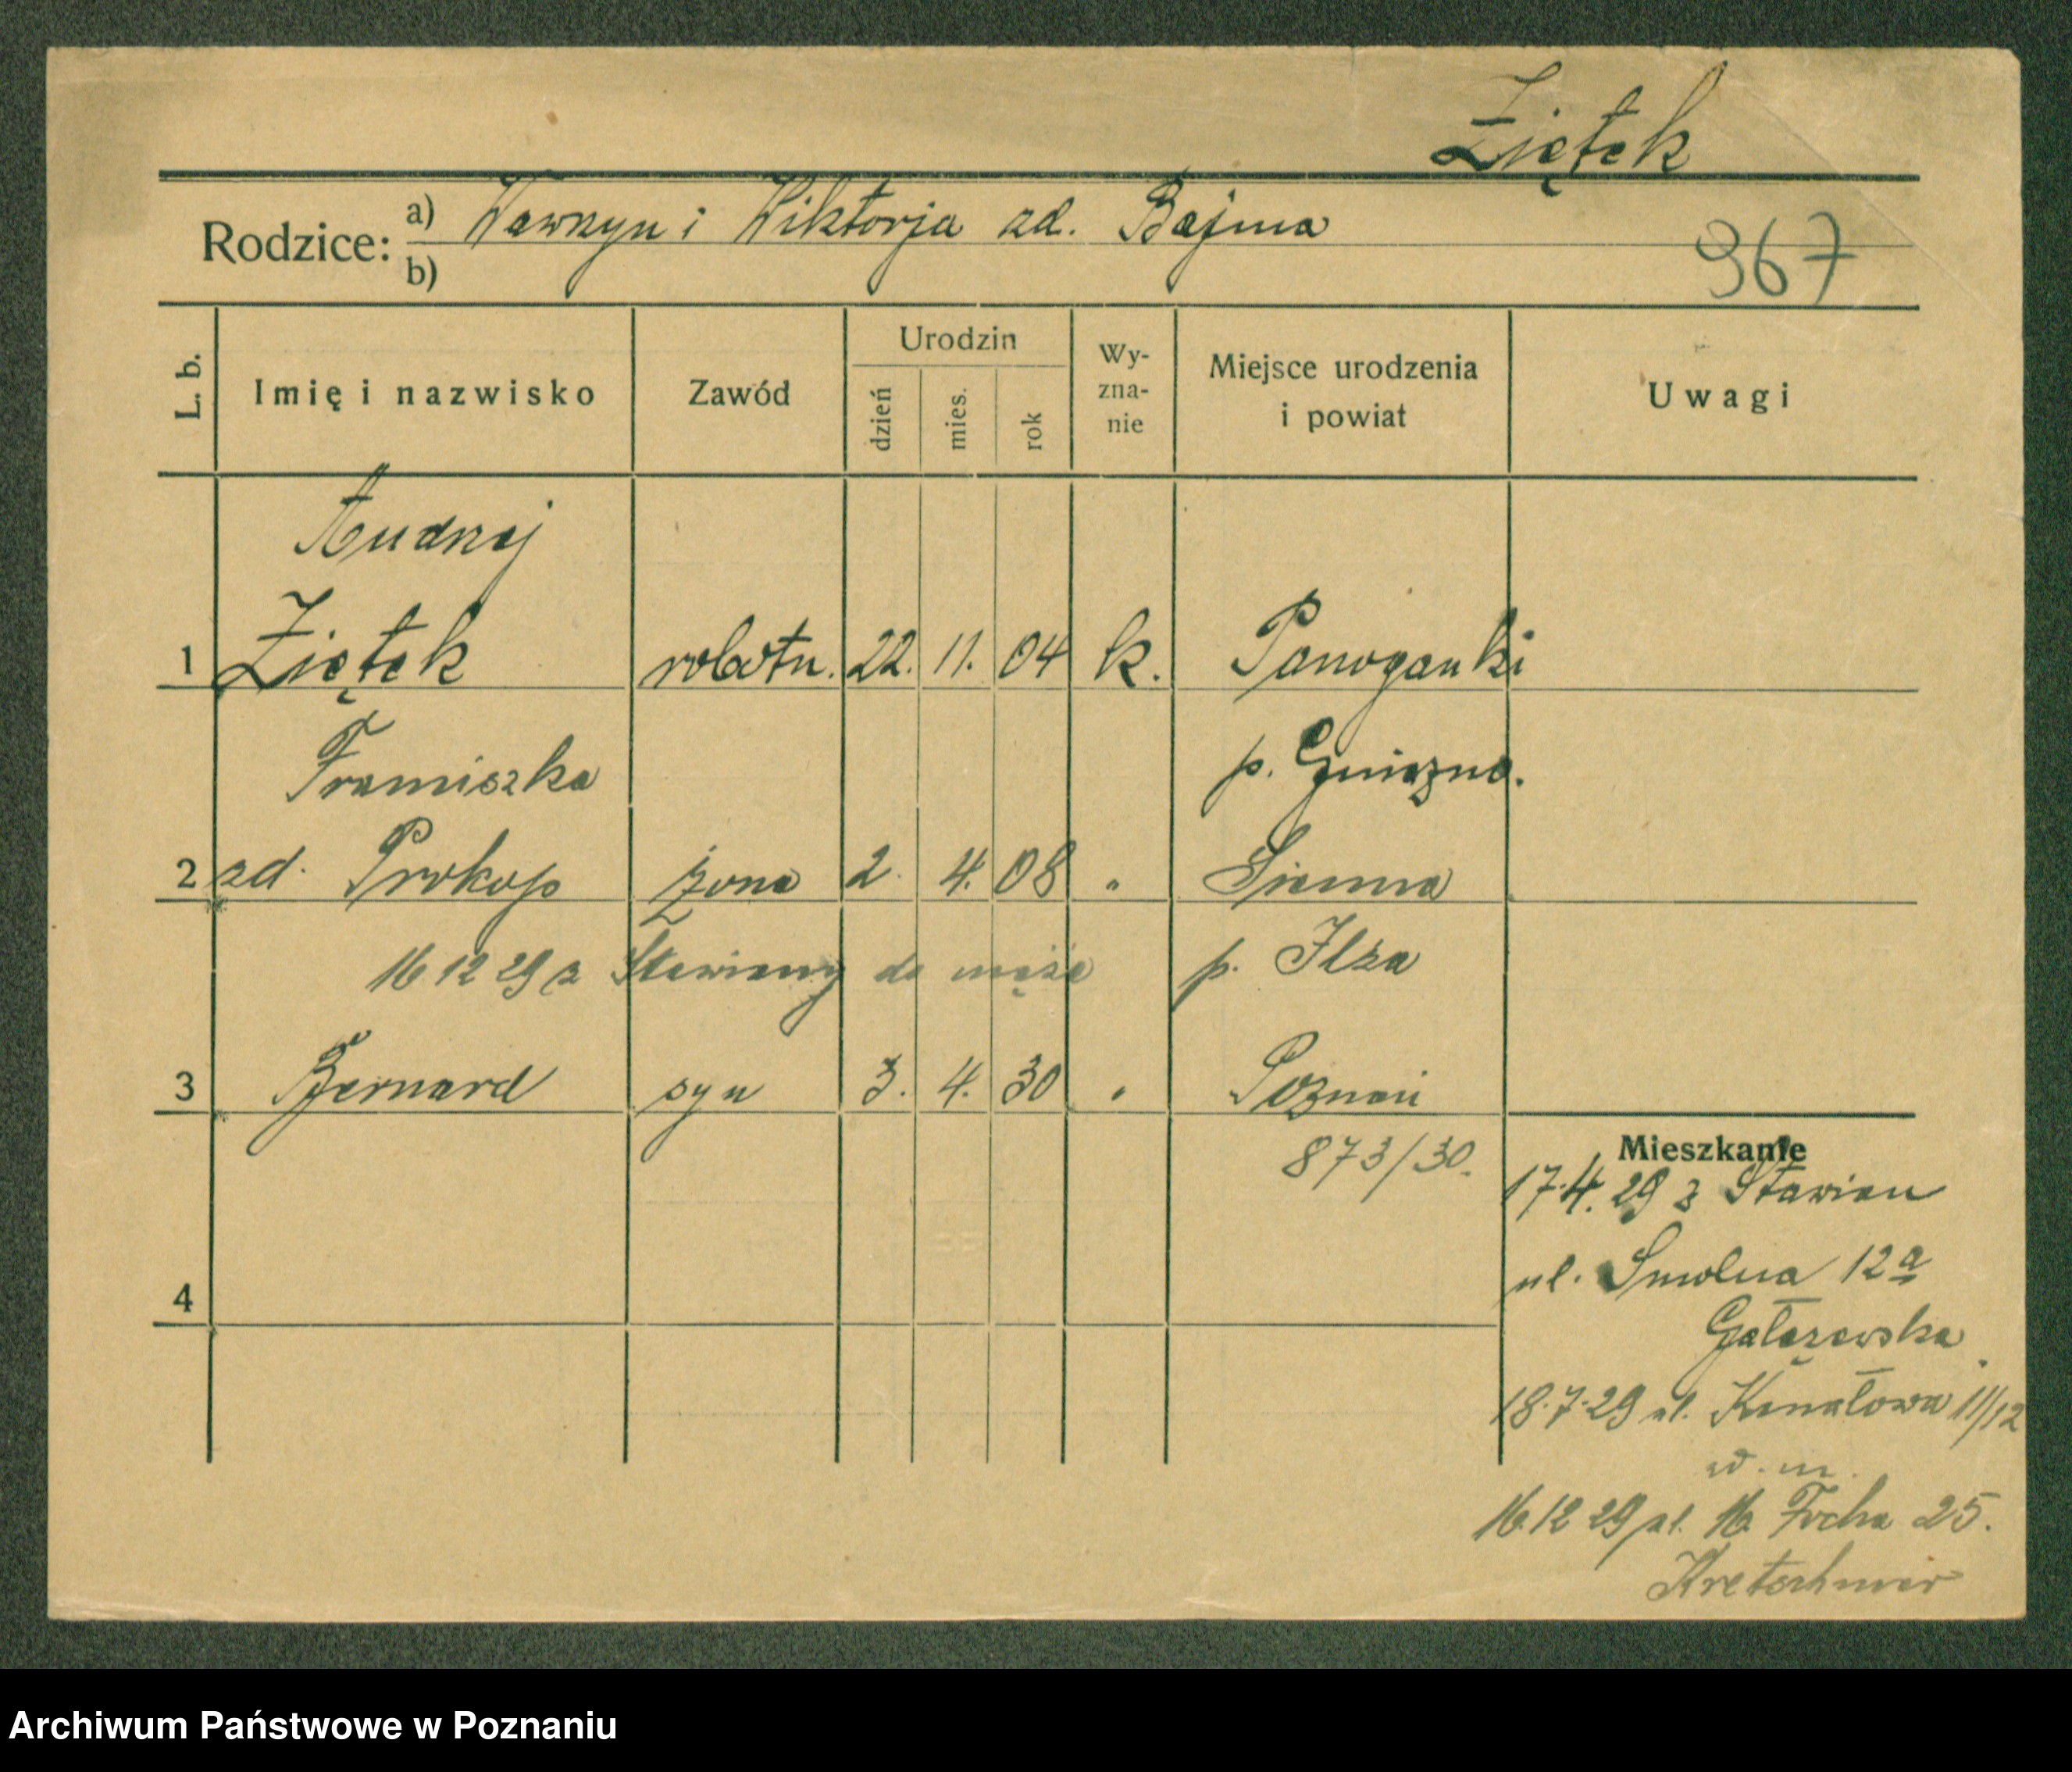 Ziętek
Rodzice: a) Wawrzyn i Wiktorja zd. Bajma
b)
967
L. b. Imię i nazwisko Zawód Urodzin dzień mies. rok Wy-zna-nie Miejsce urodzenia i powiat Uwagi
Andrzej
1 Ziętek robotn. 22. 11. 04 k.
Franciszka p. Gniezno.
2 zd. Prokop żona 2. 4. 08 " Sienna
16 12 29 z Stawiany do męża p. Iłża
3 Bernard syn 3. 4. 30 " Poznań
873/30.
Mieszkanie
17.4.29 z Stawian
ul. Smolna 12a
4
Gałązewska
18.7.29 ul. Kanałowa 11/12
w. m.
16.12 29 ul. M. Focha 25.
Kretschmer
Archiwum Państwowe w Poznaniu